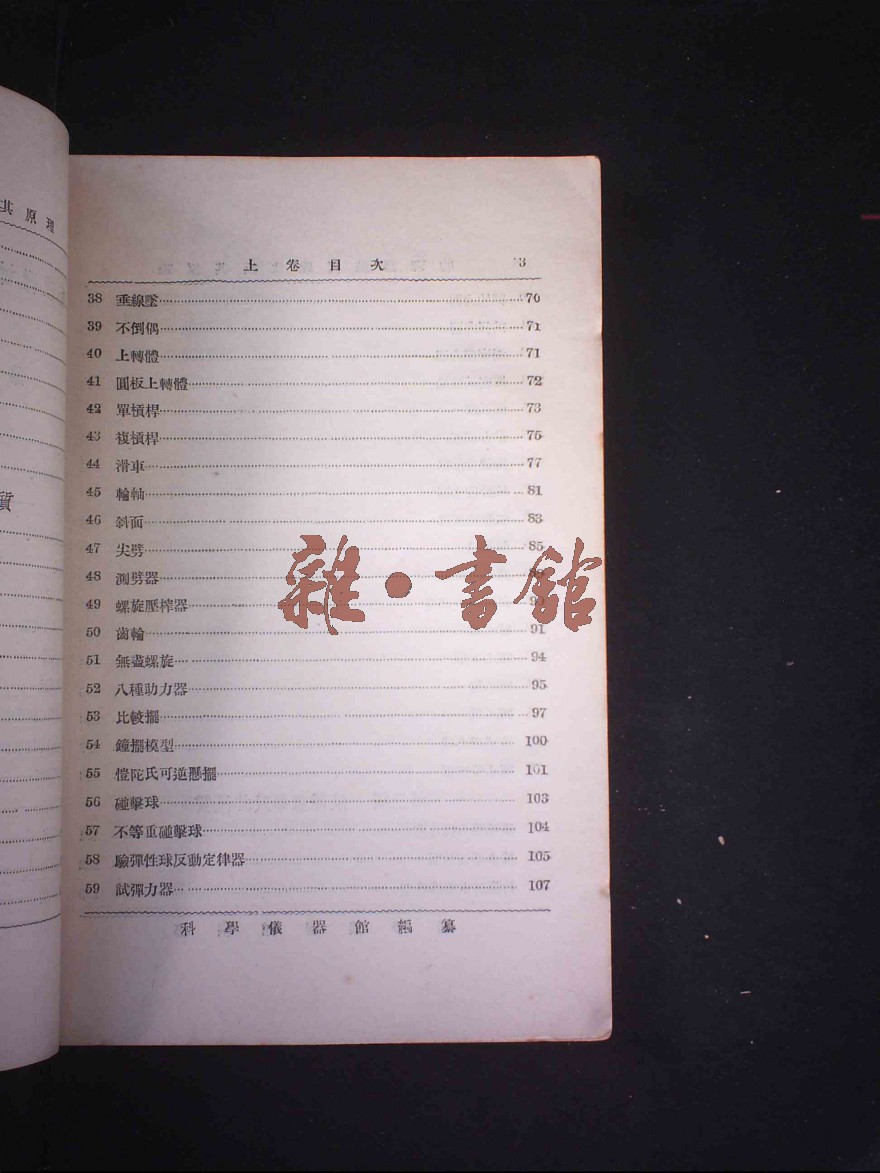 其原理
質
上卷目次 3
38 垂線墜 70
39 不倒偶 71
40 上轉體 71
41 圓板上轉體 72
42 單槓桿 73
43 複槓桿 75
44 滑車 77
45 輪軸 81
46 斜面 83
47 尖劈 85
48 測劈器
49 螺旋壓榨器
50 齒輪 91
51 無盡螺旋 94
52 八種助力器 95
53 比較擺 97
54 鐘擺模型 100
55 愷陀氏可逆懸擺 101
56 碰擊球 103
57 不等重碰擊球 104
58 驗彈性球反動定律器 105
59 試彈力器 107
科學儀器館編纂
雜·書館